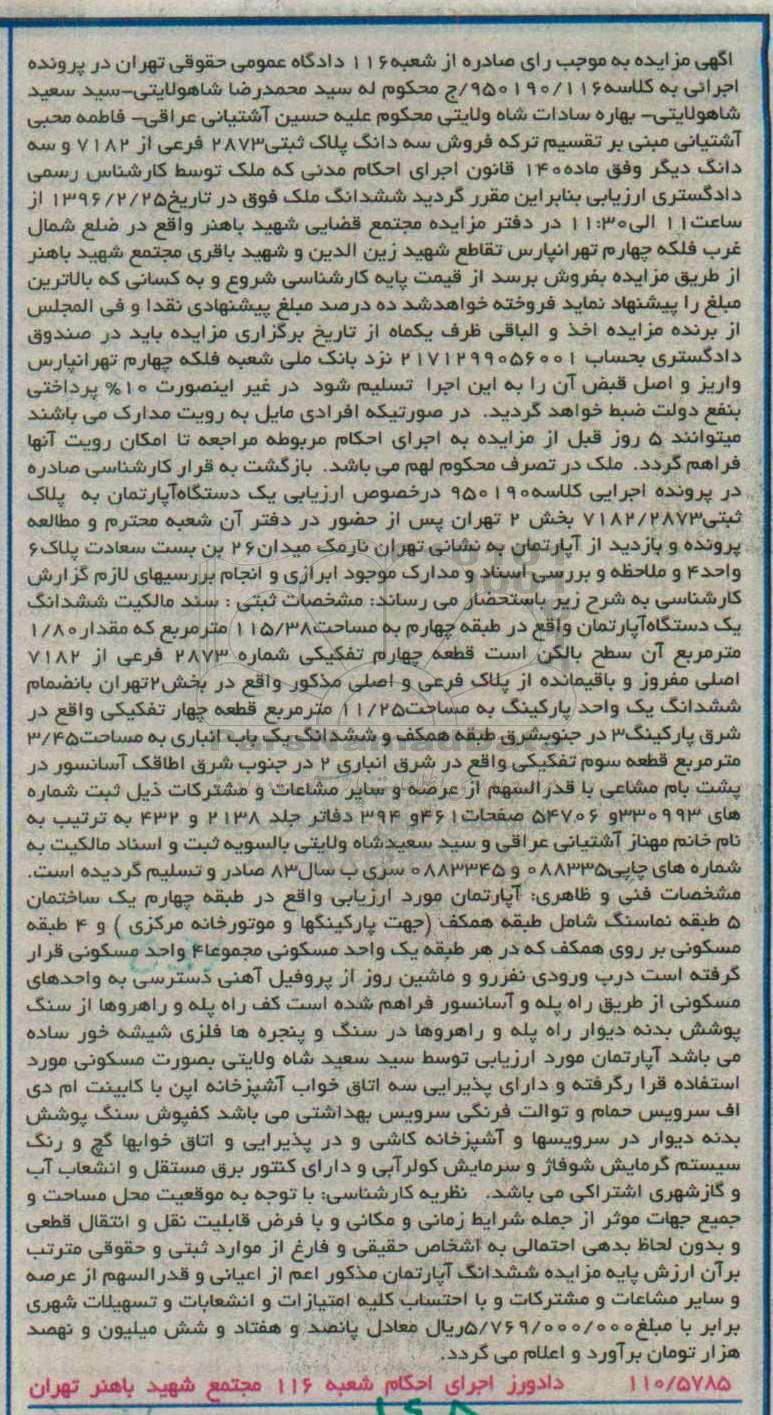 اگهی مزایده به موجب رای صادره از شعبه۱۱۶ دادگاه عمومی حقوقی تهران در پرونده
اجرائی به کلاسه۹۵۰۱۹۰/۱۱۶/ج محکوم له سید محمدرضا شاهولایتی-سید سعید
شاهولایتی- بهاره سادات شاه ولایتی محکوم علیه حسین آشتیانی عراقی- فاطمه محبی
آشتیانی مبنی بر تقسیم ترکه فروش سه دانگ پلاک ثبتی۲۸۷۳ فرعی از ۷۱۸۲ و سه
دانگ دیگر وفق ماده۱۴۰ قانون اجرای احکام مدنی که ملک توسط کارشناس رسمی
دادگستری ارزیابی بنابراین مقرر گردید ششدانگ ملک فوق در تاریخ۱۳۹۶/۲/۲۵ از
ساعت۱۱ الی۱۱:۳۰ در دفتر مزایده مجتمع قضایی شهید باهنر واقع در ضلع شمال
غرب فلکه چهارم تهرانپارس تقاطع شهید زین الدین و شهید باقری مجتمع شهید باهنر
از طریق مزایده بفروش برسد از قیمت پایه کارشناسی شروع و به کسانی که بالاترین
مبلغ را پیشنهاد نماید فروخته خواهدشد ده درصد مبلغ پیشنهادی نقدا و فی المجلس
از برنده مزایده اخذ و الباقی ظرف یکماه از تاریخ برگزاری مزایده باید در صندوق
دادگستری بحساب ۲۱۷۱۲۹۹۰۵۶۰۰۱ نزد بانک ملی شعبه فلکه چهارم تهرانپارس
واریز و اصل قبض آن را به این اجرا تسلیم شود در غیر اینصورت ۱۰% پرداختی
بنفع دولت ضبط خواهد گردید. در صورتیکه افرادی مایل به رویت مدارک می باشند
میتوانند ۵ روز قبل از مزایده به اجرای احکام مربوطه مراجعه تا امکان رویت آنها
فراهم گردد. ملک در تصرف محکوم لهم می باشد. بازگشت به قرار کارشناسی صادره
در پرونده اجرایی کلاسه۹۵۰۱۹۰ درخصوص ارزیابی یک دستگاهآپارتمان به پلاک
ثبتی۷۱۸۲/۲۸۷۳ بخش ۲ تهران پس از حضور در دفتر آن شعبه محترم و مطالعه
پرونده و بازدید از آپارتمان به نشانی تهران نارمک میدان۲۶ بن بست سعادت پلاک۶
واحد۴ و ملاحظه و بررسی اسناد و مدارک موجود ابرازی و انجام بررسیهای لازم گزارش
کارشناسی به شرح زیر باستحضار می رساند: مشخصات ثبتی : سند مالکیت ششدانگ
یک دستگاهآپارتمان واقع در طبقه چهارم به مساحت۱۱۵/۳۸ مترمربع که مقدار۱/۸۰
مترمربع آن سطح بالکن است قطعه چهارم تفکیکی شماره ۲۸۷۳ فرعی از ۷۱۸۲
اصلی مفروز و باقیمانده از پلاک فرعی و اصلی مذکور واقع در بخش۲تهران بانضمام
ششدانگ یک واحد پارکینگ به مساحت۱۱/۲۵ مترمربع قطعه چهار تفکیکی واقع در
شرق پارکینگ۳ در جنوبشرق طبقه همکف و ششدانگ یک باب انباری به مساحت۳/۴۵
مترمربع قطعه سوم تفکیکی واقع در شرق انباری ۲ در جنوب شرق اطاقک آسانسور در
پشت بام مشاعی با قدرالسهم از عرصه و سایر مشاعات و مشترکات ذیل ثبت شماره
های ۳۳۰۹۹۳و ۵۴۷۰۶ صفحات۴۶۱و ۳۹۴ دفاتر جلد ۲۱۳۸ و ۴۳۲ به ترتیب به
نام خانم مهناز آشتیانی عراقی و سید سعیدشاه ولایتی بالسویه ثبت و اسناد مالکیت به
شماره های چاپی۰۸۸۳۳۵ و ۰۸۸۳۳۴۵ سری ب سال۸۳ صادر و تسلیم گردیده است.
مشخصات فنی و ظاهری: آپارتمان مورد ارزیابی واقع در طبقه چهارم یک ساختمان
۵ طبقه نماسنگ شامل طبقه همکف (جهت پارکینگها و موتورخانه مرکزی ) و ۴ طبقه
مسکونی بر روی همکف که در هر طبقه یک واحد مسکونی مجموعا۴ واحد مسکونی قرار
گرفته است درب ورودی نفررو و ماشین روز از پروفیل آهنی دسترسی به واحدهای
مسکونی از طریق راه پله و آسانسور فراهم شده است کف راه پله و راهروها از سنگ
پوشش بدنه دیوار راه پله و راهروها در سنگ و پنجره ها فلزی شیشه خور ساده
می باشد آپارتمان مورد ارزیابی توسط سید سعید شاه ولایتی بصورت مسکونی مورد
استفاده قرا رگرفته و دارای پذیرایی سه اتاق خواب آشپزخانه اپن با کابینت ام دی
اف سرویس حمام و توالت فرنگی سرویس بهداشتی می باشد کفپوش سنگ پوشش
بدنه دیوار در سرویسها و آشپزخانه کاشی و در پذیرایی و اتاق خوابها گچ و رنگ
سیستم گرمایش شوفاژ و سرمایش کولرآبی و دارای کنتور برق مستقل و انشعاب آب
و گازشهری اشتراکی می باشد. نظریه کارشناسی: با توجه به موقعیت محل مساحت و
جمیع جهات موثر از جمله شرایط زمانی و مکانی و با فرض قابلیت نقل و انتقال قطعی
و بدون لحاظ بدهی احتمالی به اشخاص حقیقی و فارغ از موارد ثبتی و حقوقی مترتب
برآن ارزش پایه مزایده ششدانگ آپارتمان مذکور اعم از اعیانی و قدرالسهم از عرصه
و سایر مشاعات و مشترکات و با احتساب کلیه امتیازات و انشعابات و تسهیلات شهری
برابر با مبلغ۵/۷۶۹/۰۰۰/۰۰۰ریال معادل پانصد و هفتاد و شش میلیون و نهصد
هزار تومان برآورد و اعلام می گردد.
۱۱۰/۵۷۸۵ دادورز اجرای احکام شعبه ۱۱۶ مجتمع شهید باهنر تهران